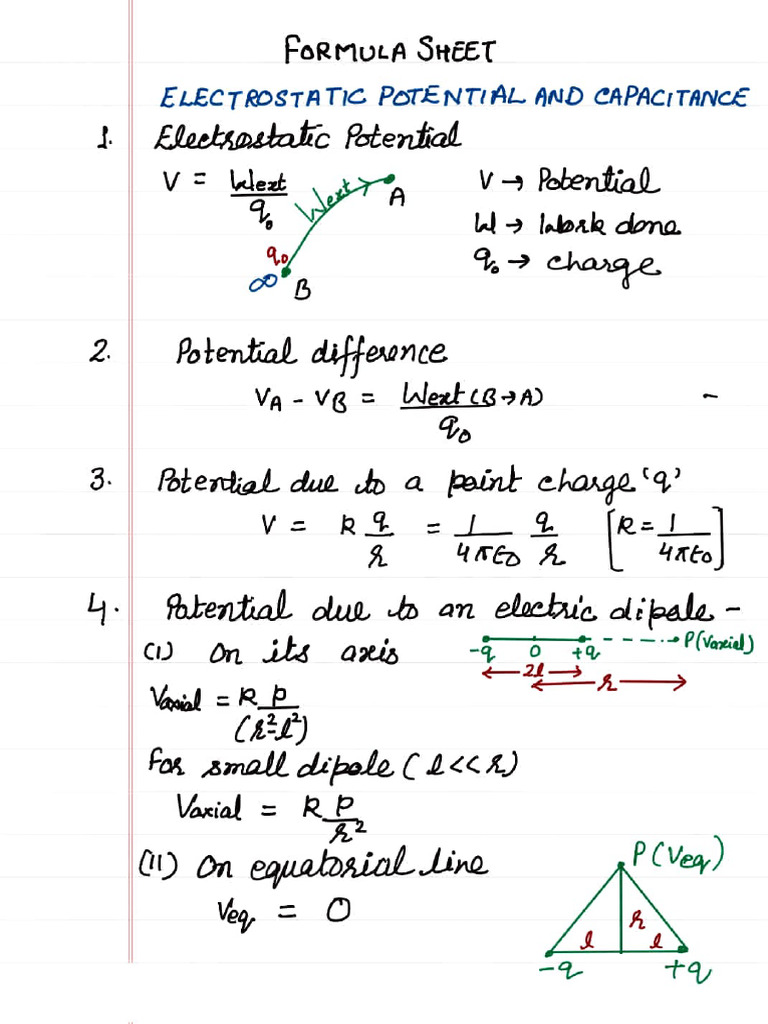 FORMULA SHEET
ELECTROSTATIC POTENTIAL AND CAPACITANCE
1. Electrostatic Potential
V = Wext/q₀
Wext
A
q₀
∞
B
V → Potential
W → Work done
q₀ → charge
2. Potential difference
VA - VB = Wext (B→A)/q₀ -
3. Potential due to a point charge 'q'
V = k q/r = 1/4πε₀ q/r [k = 1/4πε₀]
4. Potential due to an electric dipole -
(I) On its axis
-q O +q P(Vaxial)
2l
r
Vaxial = k p/(r²-l²)
For small dipole (l<<r)
Vaxial = k p/r²
(II) On equatorial line
Veq = 0
P(Veq)
r
l l
-q +q